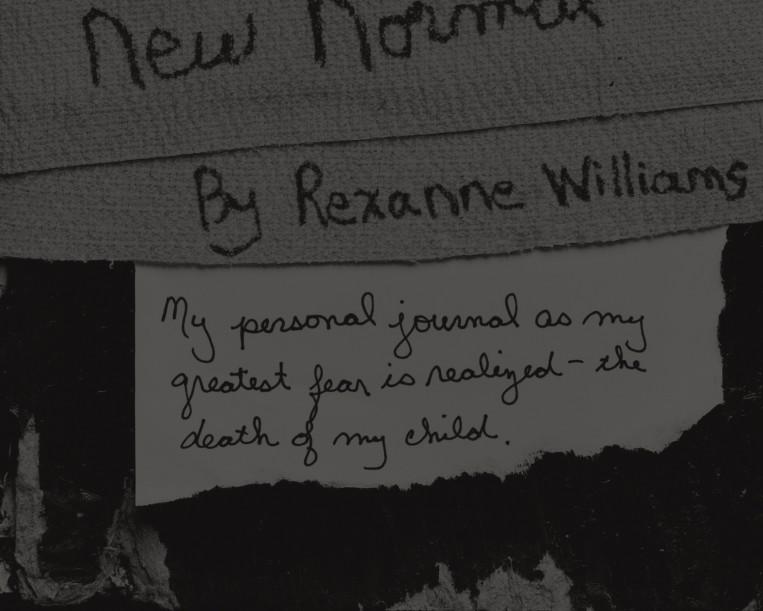 New Normal
By Rexanne Williams
My personal journal as my
greatest fear is realized - the
death of my child.